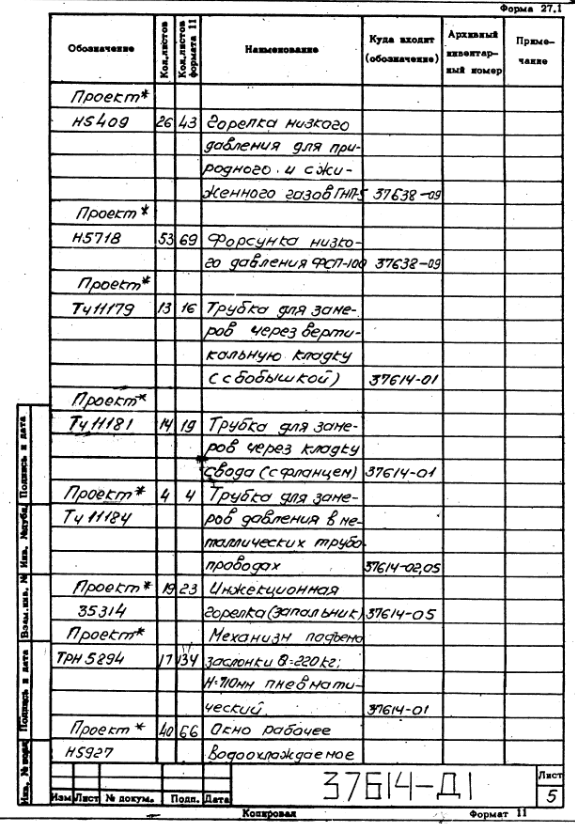 Форма 27.1
Обозначение Кол.листов Кол.листов формата 11 Наименование Куда входит (обозначение) Архивный инвентар-ный номер Приме-чание
Проект*
Н5409 26 43 Горелка низкого
давления для при-
родного и сжи-
женного газов ГНП-5 37638-09
Проект*
Н5718 53 69 Форсунка низко-
го давления ФСП-100 37638-09
Проект*
Тч11179 13 16 Трубка для заме-
ров через верти-
кальную кладку
(с бобышкой) 37614-01
Проект*
Тч11181 14 19 Трубка для заме-
ров через кладку
свода (с фланцем) 37614-01
Проект* 4 4 Трубка для заме-
Тч11184 ров давления в ме-
таллических трубо-
проводах 37614-02,05
Проект* 19 23 Инжекционная
35314 горелка (запальник) 37614-05
Проект* Механизм подъема
ТРН5294 17 134 заслонки Q=220кг;
Н=710мм пневмати-
ческий 37614-01
Проект* 40 66 Окно рабочее
Н5927 водоохлаждаемое
Инв. № подл Подпись и дата Взам.инв. № Инв. №дубл Подпись и дата
37614-Д1
Лист
5
Изм Лист № докум. Подп. Дата
Копировал Формат 11